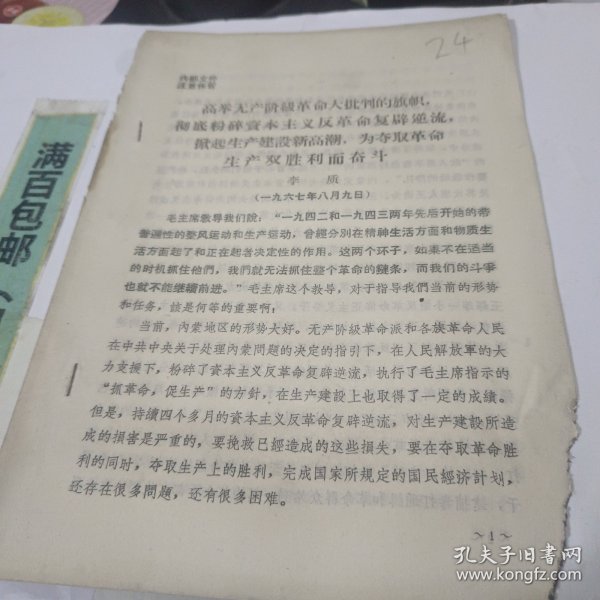 24
内部文件
注意保管
高举无产阶级革命大批判的旗帜，
彻底粉碎資本主义反革命复辟逆流，
掀起生产建設新高潮，为夺取革命
生产双胜利而奋斗
李 质
（一九六七年八月九日）
毛主席教导我們說：“一九四二和一九四三两年先后开始的带
普遍性的整风运动和生产运动，曾經分別在精神生活方面和物质生
活方面起了和正在起着决定性的作用。这两个环子，如果不在适当
的时机抓住他們，我們就无法抓住整个革命的鏈条，而我們的斗爭
也就不能继續前进。”毛主席这个教导，对于指导我們当前的形势
和任务，該是何等的重要啊！
当前，內蒙地区的形势大好。无产阶级革命派和各族革命人民
在中共中央关于处理內蒙問題的决定的指引下，在人民解放軍的大
力支援下，粉碎了資本主义反革命复辟逆流，执行了毛主席指示的
“抓革命，促生产”的方針，在生产建設上也取得了一定的成績。
但是，持續四个多月的資本主义反革命复辟逆流，对生产建設所造
成的損害是严重的，要挽救已經造成的这些損失，要在夺取革命胜
利的同时，夺取生产上的胜利，完成国家所規定的国民經济計划，
还存在很多問題，还有很多困难。
～1～
满百包邮
孔夫子旧书网
www.kongfz.com